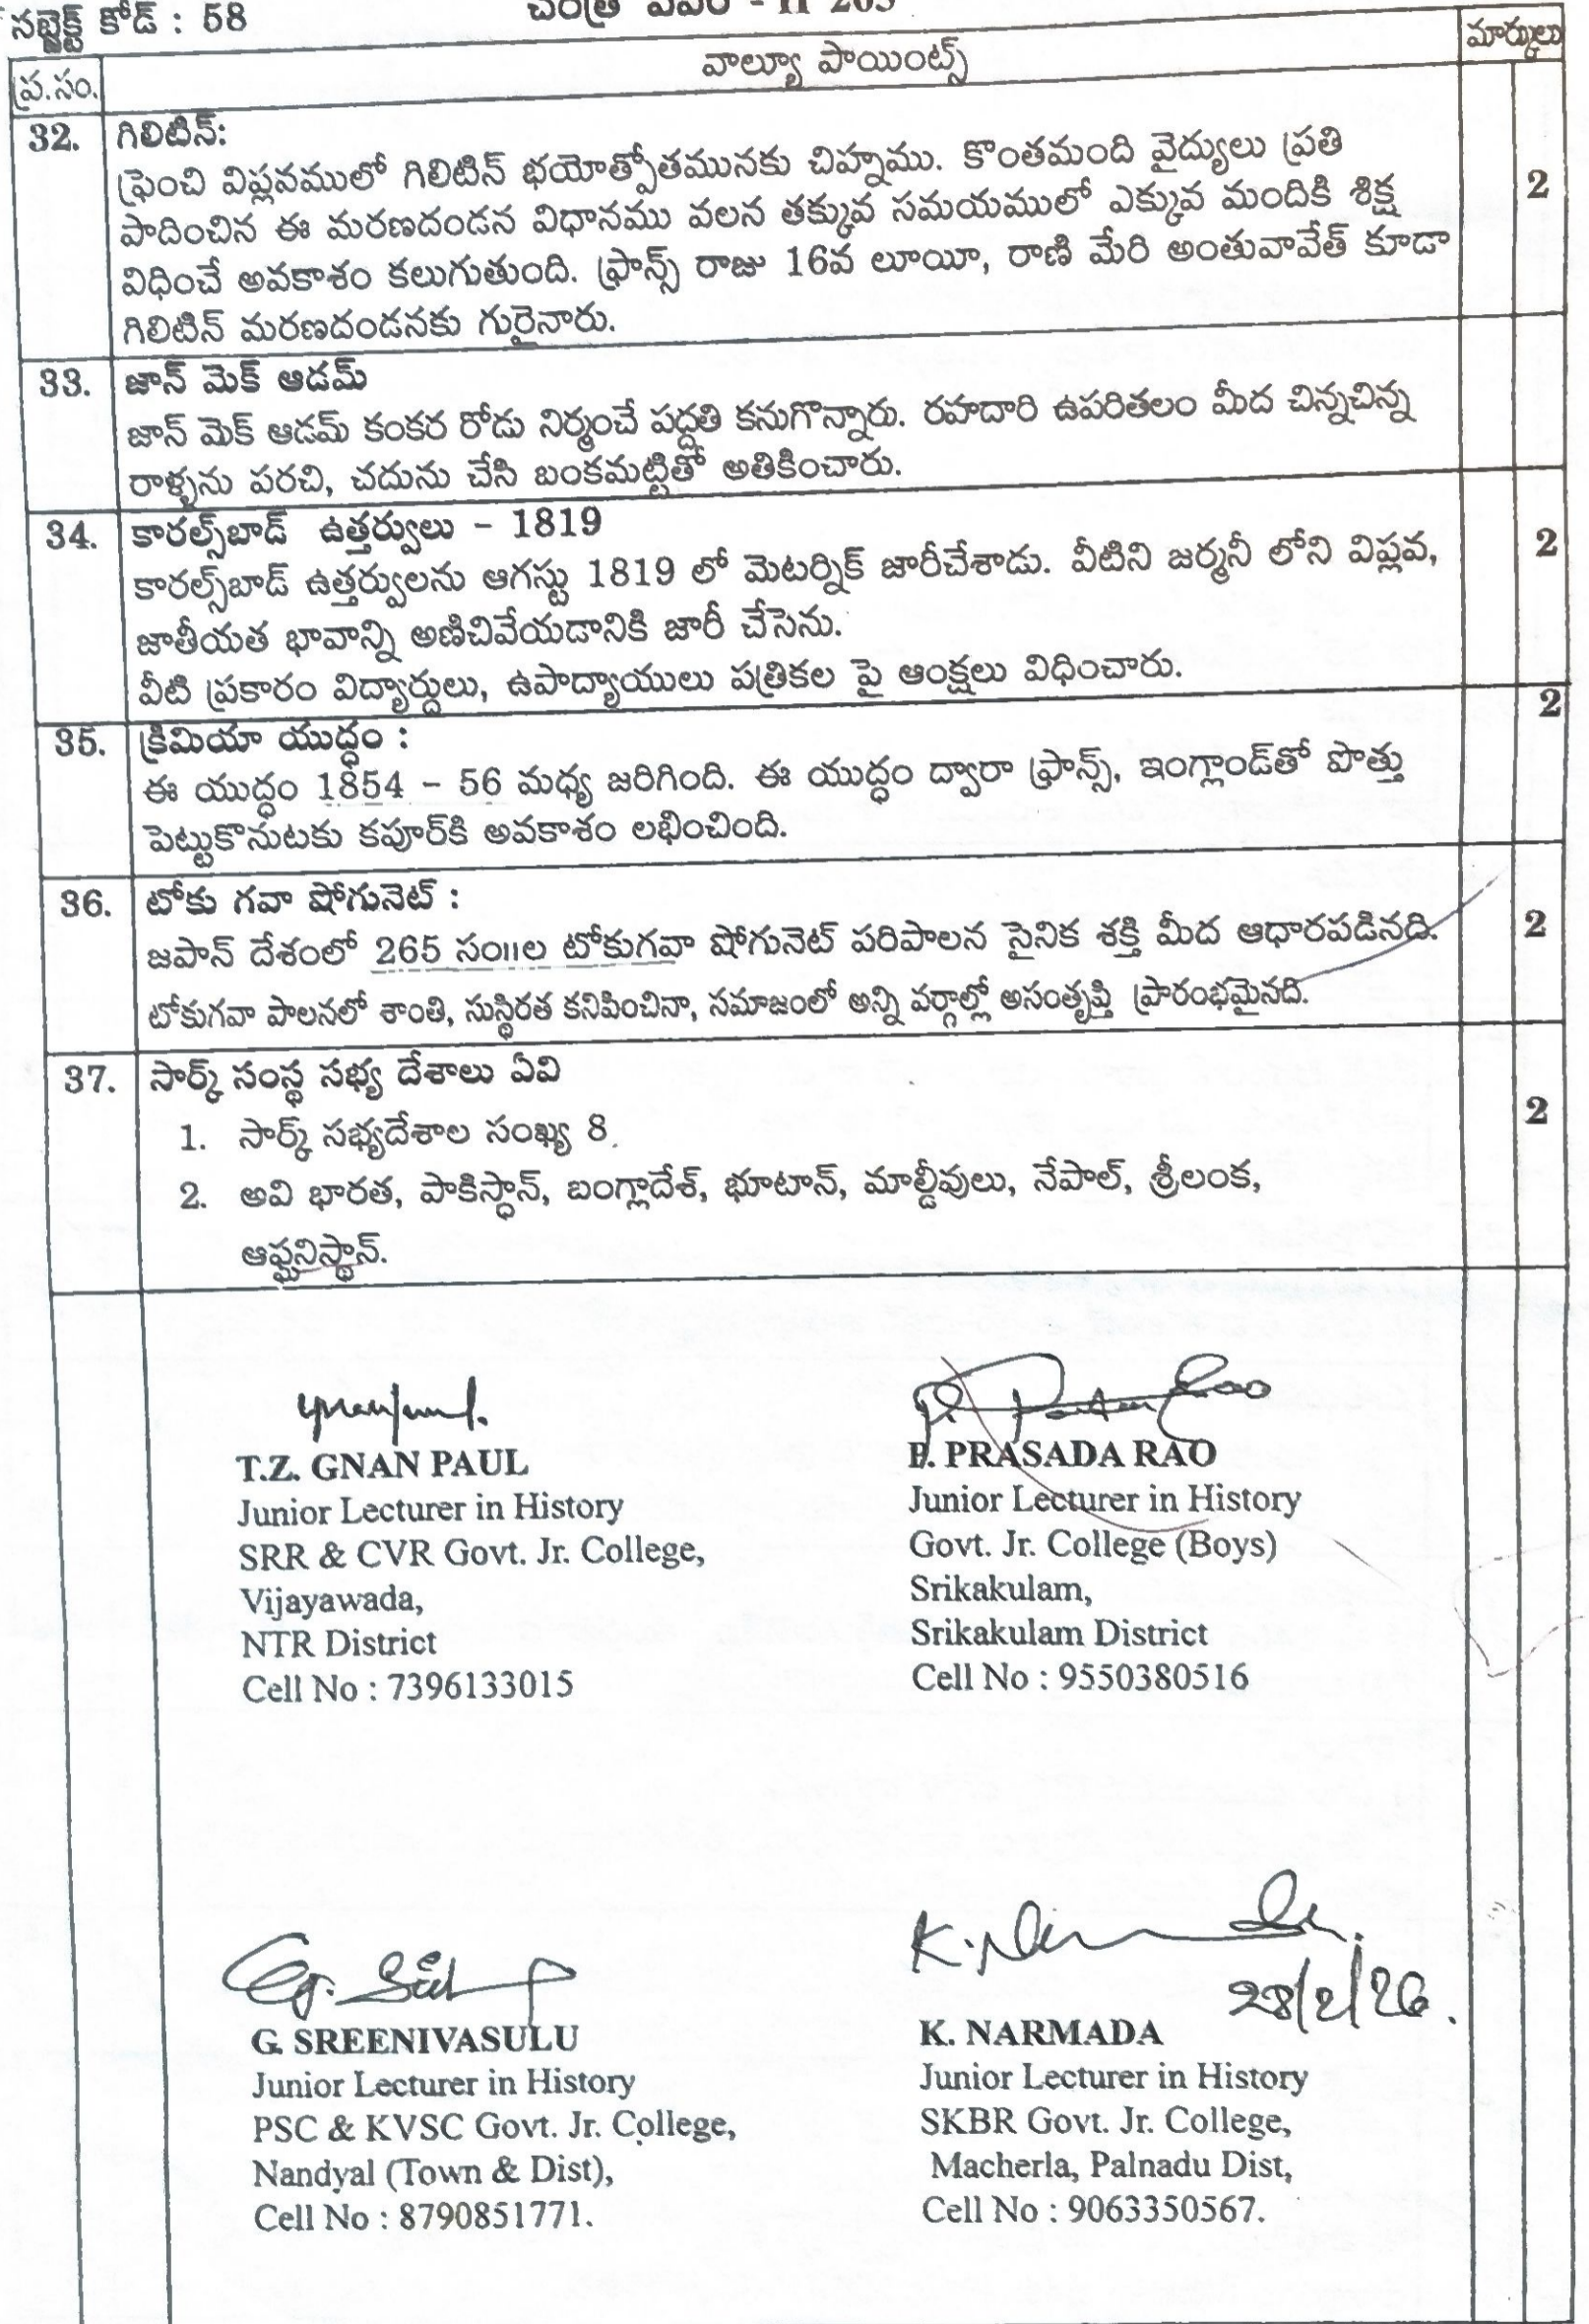 సబ్జెక్ట్ కోడ్ : 58
- II 205
మార్కులు
ప్ర.సం.
వాల్యూ పాయింట్స్
32. గిలిటిన్:
ఫ్రెంచి విప్లవములో గిలిటిన్ భయోత్పోతమునకు చిహ్నము. కొంతమంది వైద్యులు ప్రతి
పాదించిన ఈ మరణదండన విధానము వలన తక్కువ సమయములో ఎక్కువ మందికి శిక్ష 2
విధించే అవకాశం కలుగుతుంది. ఫ్రాన్స్ రాజు 16వ లూయీ, రాణి మేరి అంతువావేత్ కూడా
గిలిటిన్ మరణదండనకు గురైనారు.
33. జాన్ మెక్ ఆడమ్
జాన్ మెక్ ఆడమ్ కంకర రోడు నిర్మంచే పద్దతి కనుగొన్నారు. రహదారి ఉపరితలం మీద చిన్నచిన్న
రాళ్ళను పరచి, చదును చేసి బంకమట్టితో అతికించారు.
34. కారల్స్‌బాడ్ ఉత్తర్వులు - 1819
కారల్స్‌బాడ్ ఉత్తర్వులను ఆగస్టు 1819 లో మెటర్నిక్ జారీచేశాడు. వీటిని జర్మనీ లోని విప్లవ, 2
జాతీయత భావాన్ని అణిచివేయడానికి జారీ చేసెను.
వీటి ప్రకారం విద్యార్దులు, ఉపాద్యాయులు పత్రికల పై ఆంక్షలు విధించారు.
35. క్రిమియా యుద్ధం : 2
ఈ యుద్ధం 1854 - 56 మధ్య జరిగింది. ఈ యుద్ధం ద్వారా ఫ్రాన్స్, ఇంగ్లాండ్‌తో పొత్తు
పెట్టుకొనుటకు కపూర్‌కి అవకాశం లభించింది.
36. టోకు గవా షోగునెట్ :
జపాన్ దేశంలో 265 సం॥ల టోకుగవా షోగునెట్ పరిపాలన సైనిక శక్తి మీద ఆధారపడినది. 2
టోకుగవా పాలనలో శాంతి, సుస్థిరత కనిపించినా, సమాజంలో అన్ని వర్గాల్లో అసంతృప్తి ప్రారంభమైనది.
37. సార్క్ సంస్థ సభ్య దేశాలు ఏవి
1. సార్క్ సభ్యదేశాల సంఖ్య 8. 2
2. అవి భారత, పాకిస్థాన్, బంగ్లాదేశ్, భూటాన్, మాల్దీవులు, నేపాల్, శ్రీలంక,
ఆఫ్ఘనిస్థాన్.
T.Z. GNAN PAUL
Junior Lecturer in History
SRR & CVR Govt. Jr. College,
Vijayawada,
NTR District
Cell No : 7396133015
P. PRASADA RAO
Junior Lecturer in History
Govt. Jr. College (Boys)
Srikakulam,
Srikakulam District
Cell No : 9550380516
G. SREENIVASULU
Junior Lecturer in History
PSC & KVSC Govt. Jr. College,
Nandyal (Town & Dist),
Cell No : 8790851771.
28/2/26.
K. NARMADA
Junior Lecturer in History
SKBR Govt. Jr. College,
Macherla, Palnadu Dist,
Cell No : 9063350567.